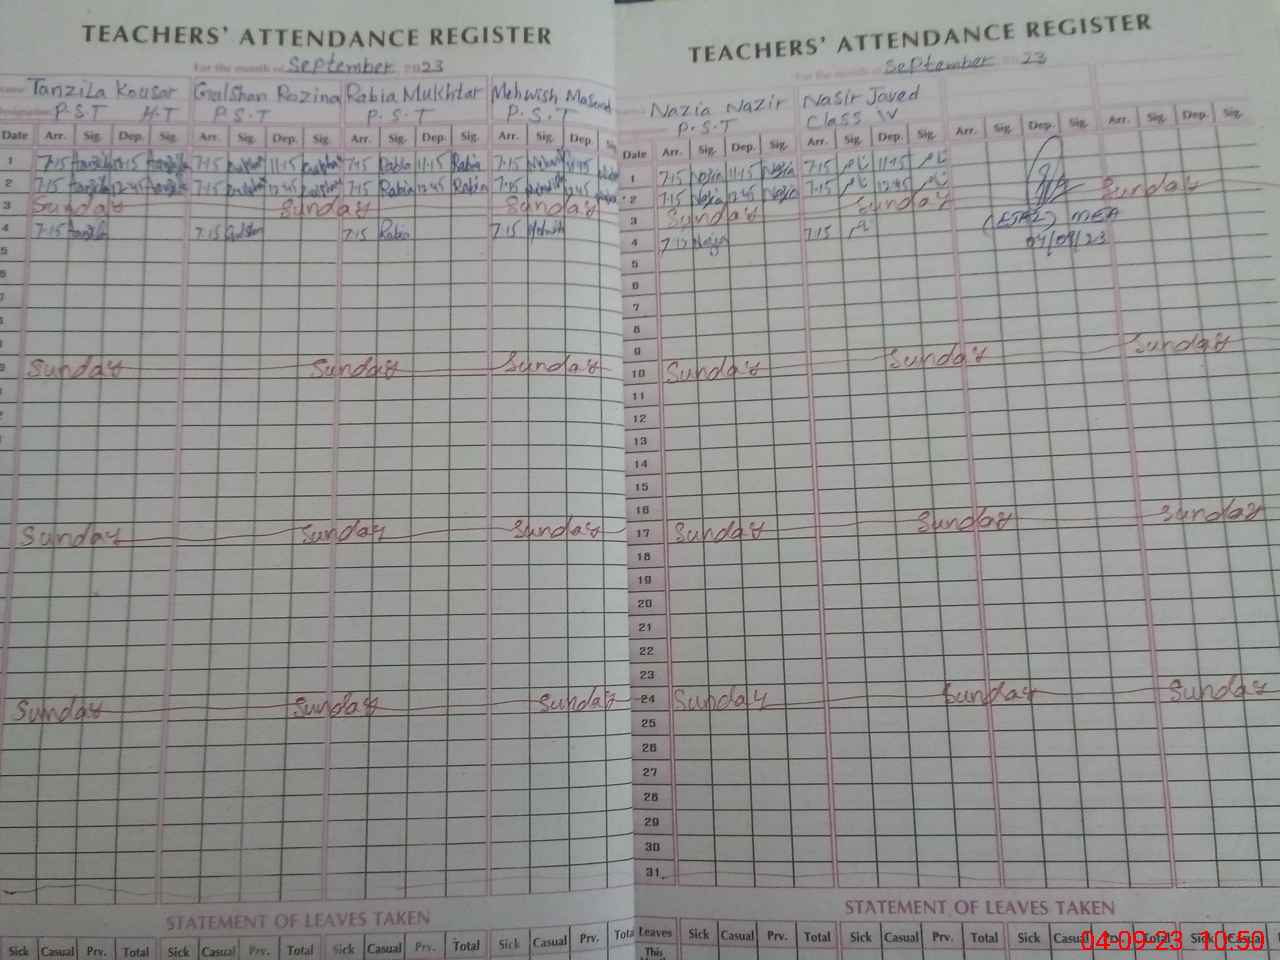 TEACHERS' ATTENDANCE REGISTER
For the month of September 2023
Tanzila Kousar Gulshan Rozina Rabia Mukhtar Mehwish Masood
P.S.T H.T P.S.T P.S.T P.S.T
Date Arr. Sig. Dep. Sig. Arr. Sig. Dep. Sig. Arr. Sig. Dep. Sig. Arr. Sig. Dep.
1 7:15 11:15 7:15 11:15 7:15 Rabia 11:15 Rabia 7:15 11:15
2 7:15 12:45 7:15 12:45 7:15 Rabia 12:45 Rabia 7:15 12:45
3 Sunday Sunday Sunday
4 7:15 7:15 7:15 Rabia 7:15
5
6
Sunday Sunday Sunday
Sunday Sunday Sunday
Sunday Sunday Sunday
STATEMENT OF LEAVES TAKEN
Sick Casual Prv. Total Sick Casual Prv. Total Sick Casual Prv. Total Sick Casual Prv.
TEACHERS' ATTENDANCE REGISTER
For the month of September 2023
Nazia Nazir Nasir Javed
P.S.T Class IV
Date Arr. Sig. Dep. Sig. Arr. Sig. Dep. Sig. Arr. Sig. Dep. Sig. Arr. Sig. Dep. Sig.
1 7:15 Nazia 11:15 Nazia 7:15 11:15
2 7:15 Nazia 12:45 Nazia 7:15 12:45
3 Sunday Sunday Sunday
4 Nazia 7:15
MEA
04/09/23
5
6
7
8
9
10 Sunday Sunday Sunday
11
12
13
14
15
16
17 Sunday Sunday Sunday
18
19
20
21
22
23
24 Sunday Sunday Sunday
25
26
27
28
29
30
31
STATEMENT OF LEAVES TAKEN
Leaves Sick Casual Prv. Total Sick Casual Prv. Total Sick Casual Total Sick Casual
This
04-09-23 10:50